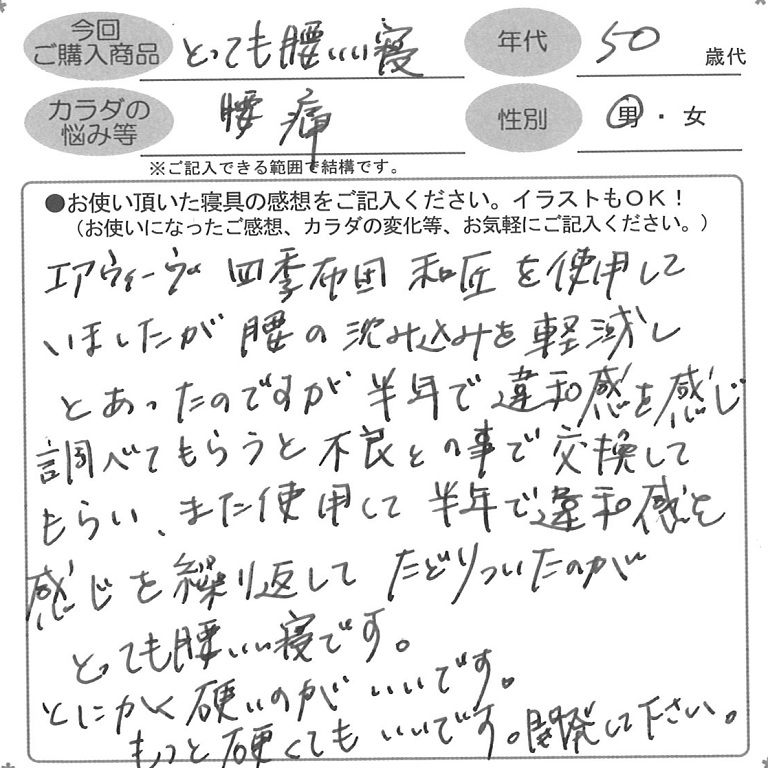 今回
ご購入商品 とっても腰いい寝 年代 50 歳代
カラダの
悩み等 腰痛 性別 男・女
※ご記入できる範囲で結構です。
●お使い頂いた寝具の感想をご記入ください。イラストもOK!
(お使いになったご感想、カラダの変化等、お気軽にご記入ください。)
エアウィーヴ 四季布団 和匠を使用して
いましたが 腰の沈み込みを軽減し
とあったのですが 半年で違和感を感じ
調べてもらうと不良との事で交換して
もらい、また使用して半年で違和感を
感じを繰り返して たどりついたのが
とっても腰いい寝です。
とにかく硬いのがいいです。
もっと硬くてもいいです。開発して下さい。